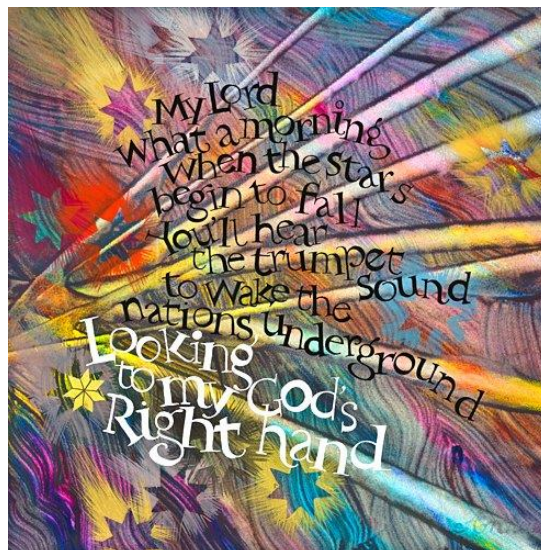 My Lord
what a morning,
when the stars
begin to fall
You'll hear
the trumpet
sound
to wake the
nations underground
Looking
to my God's
Right hand